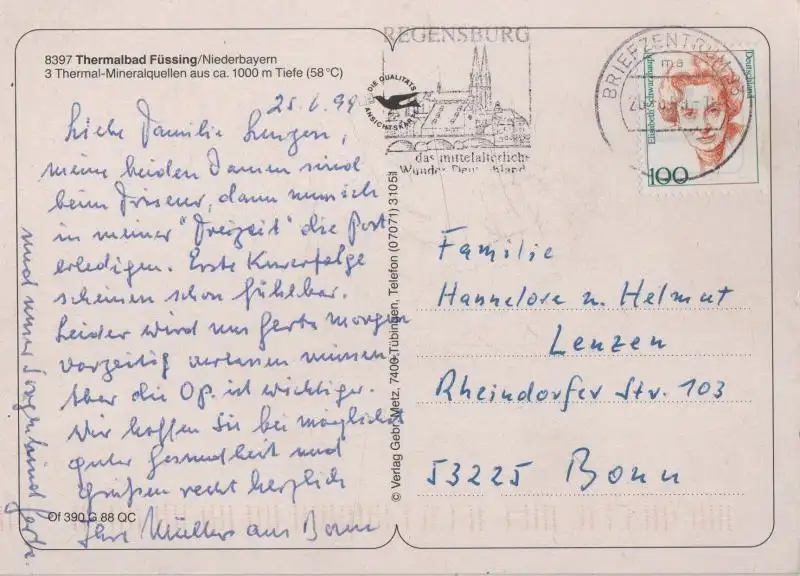 8397 Thermalbad Füssing/Niederbayern
3 Thermal-Mineralquellen aus ca. 1000 m Tiefe (58°C)
Liebe Familie Lenzen,
meine beiden Damen sind
beim Friseur, dann muss ich
in meiner "Freizeit" die Post
erledigen. Erste Kurerfolge
scheinen schon fühlbar.
Leider wird uns Gerta morgen
vorzeitig verlassen müssen
Aber die Op. ist wichtiger.
Wir hoffen Sie bei möglichst
guter Gesundheit und
grüßen recht herzlich
Ihre Müllers aus Bonn
und unser Sorgenkind
Of 390 G 88 QC
© Verlag Gebr. Metz, 7400 Tübingen, Telefon (07071) 31051
DIE QUALITÄTS
ANSICHTSKARTE
REGENSBURG
das mittelalterliche
Wunder Deutschlands
BRIEFZENTRUM 93
ma
Elisabeth Schwarzhaupt
Deutschland
100
Familie
Hannelore u. Helmut
Lenzen
Rheindorfer Str. 103
53225 Bonn